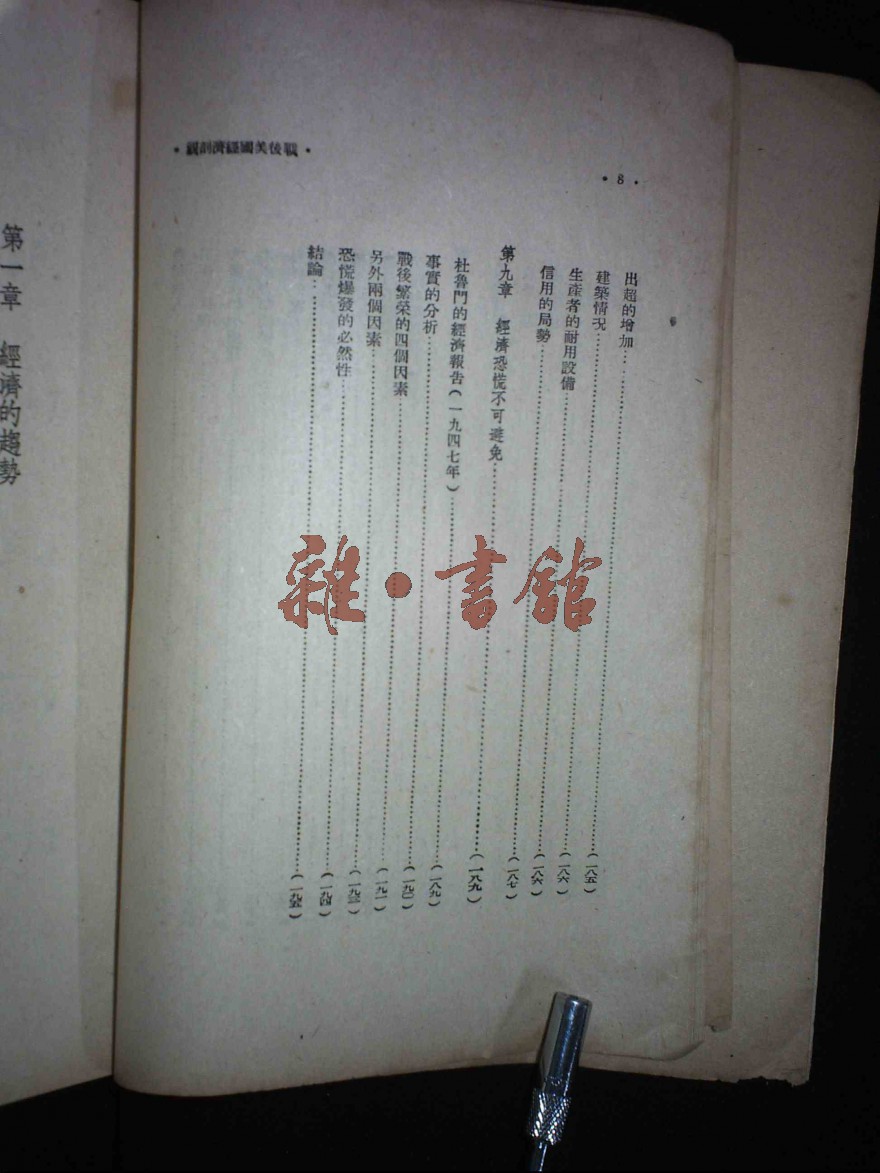 ·戰後美國經濟剖視·
·8·
出超的增加……(一八五)
建築情況……(一八六)
生產者的耐用設備……(一八六)
信用的局勢……(一八七)
第九章 經濟恐慌不可避免……(一八九)
杜魯門的經濟報告(一九四七年)……(一八九)
事實的分析……(一九〇)
戰後繁荣的四個因素……(一九一)
另外兩個因素……(一九三)
恐慌爆發的必然性……(一九四)
結論……(一九五)
第一章 經濟的趨勢
雜·書館